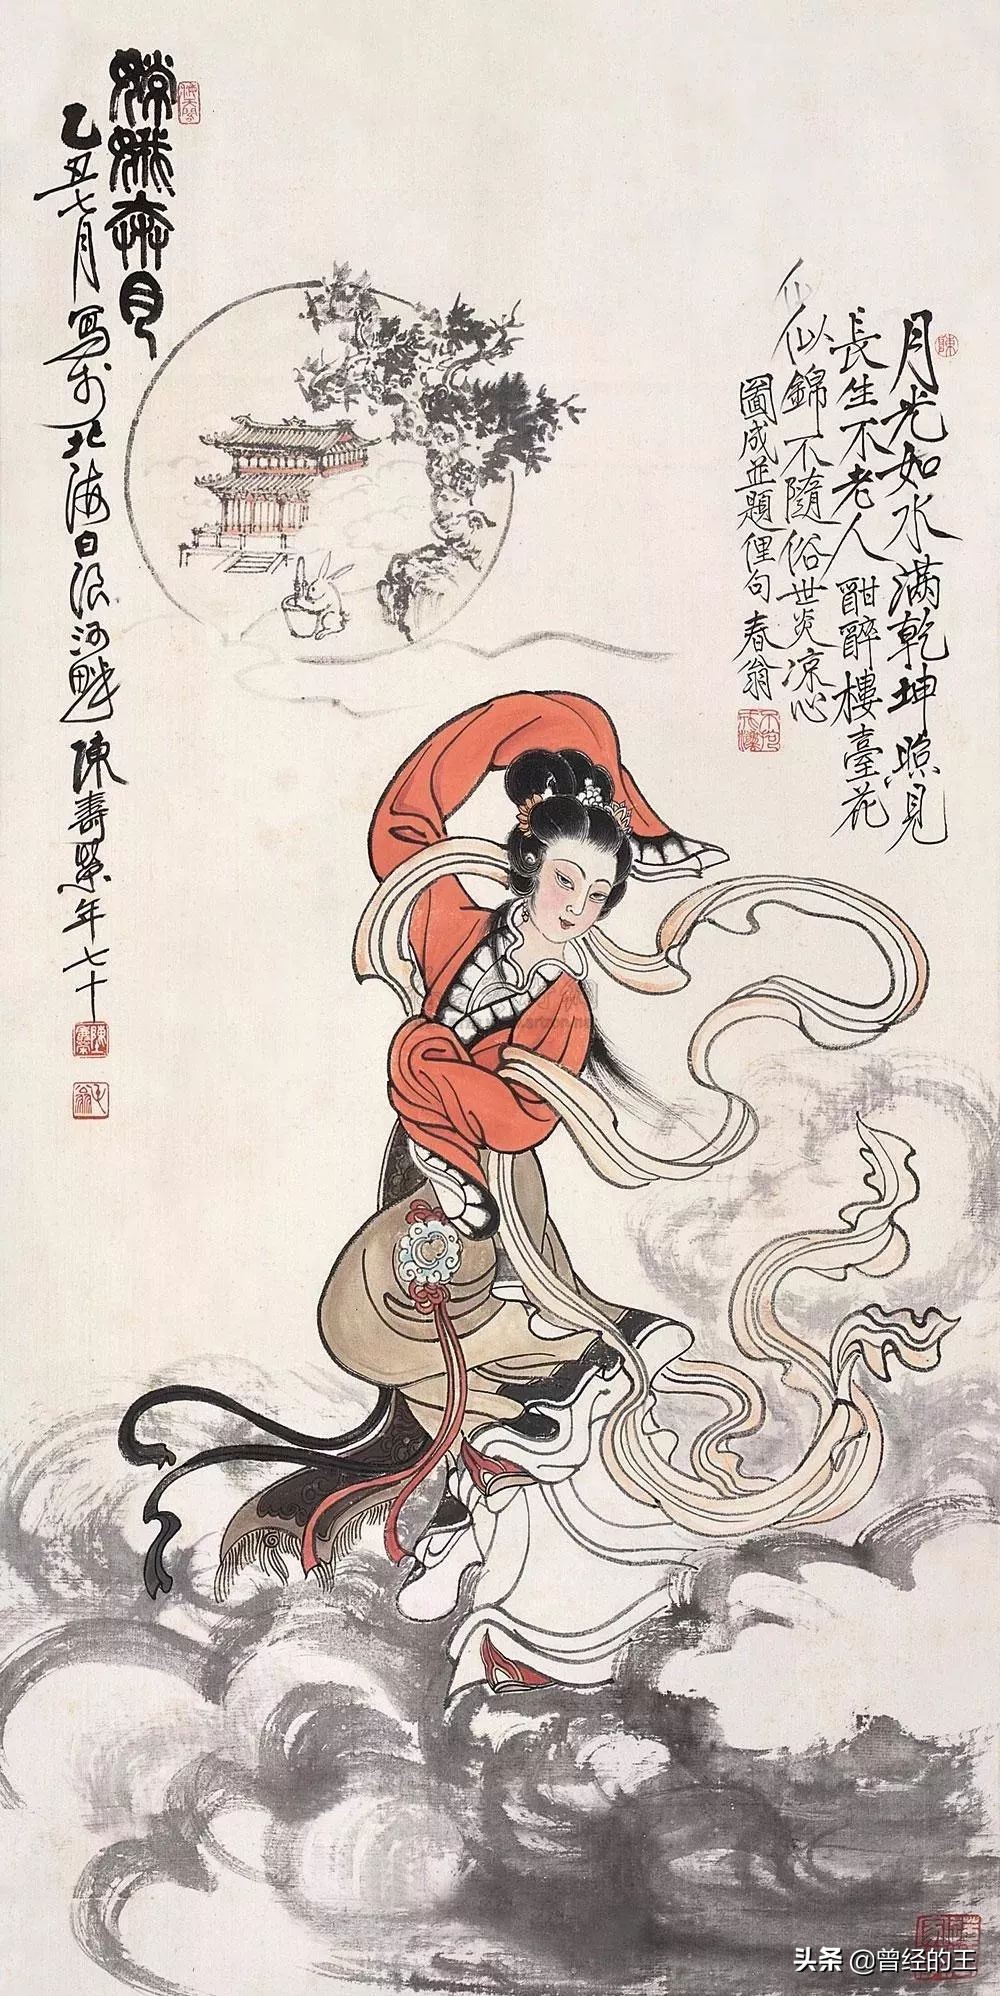 月光如水满乾坤照見
長生不老人酣醉樓臺花
似錦不隨俗世炎凉心
圖成並題俚句春翁
嫦娥奔月
乙丑七月寫於北海白浪河畔陳壽榮年七十
头条 @曾经的王